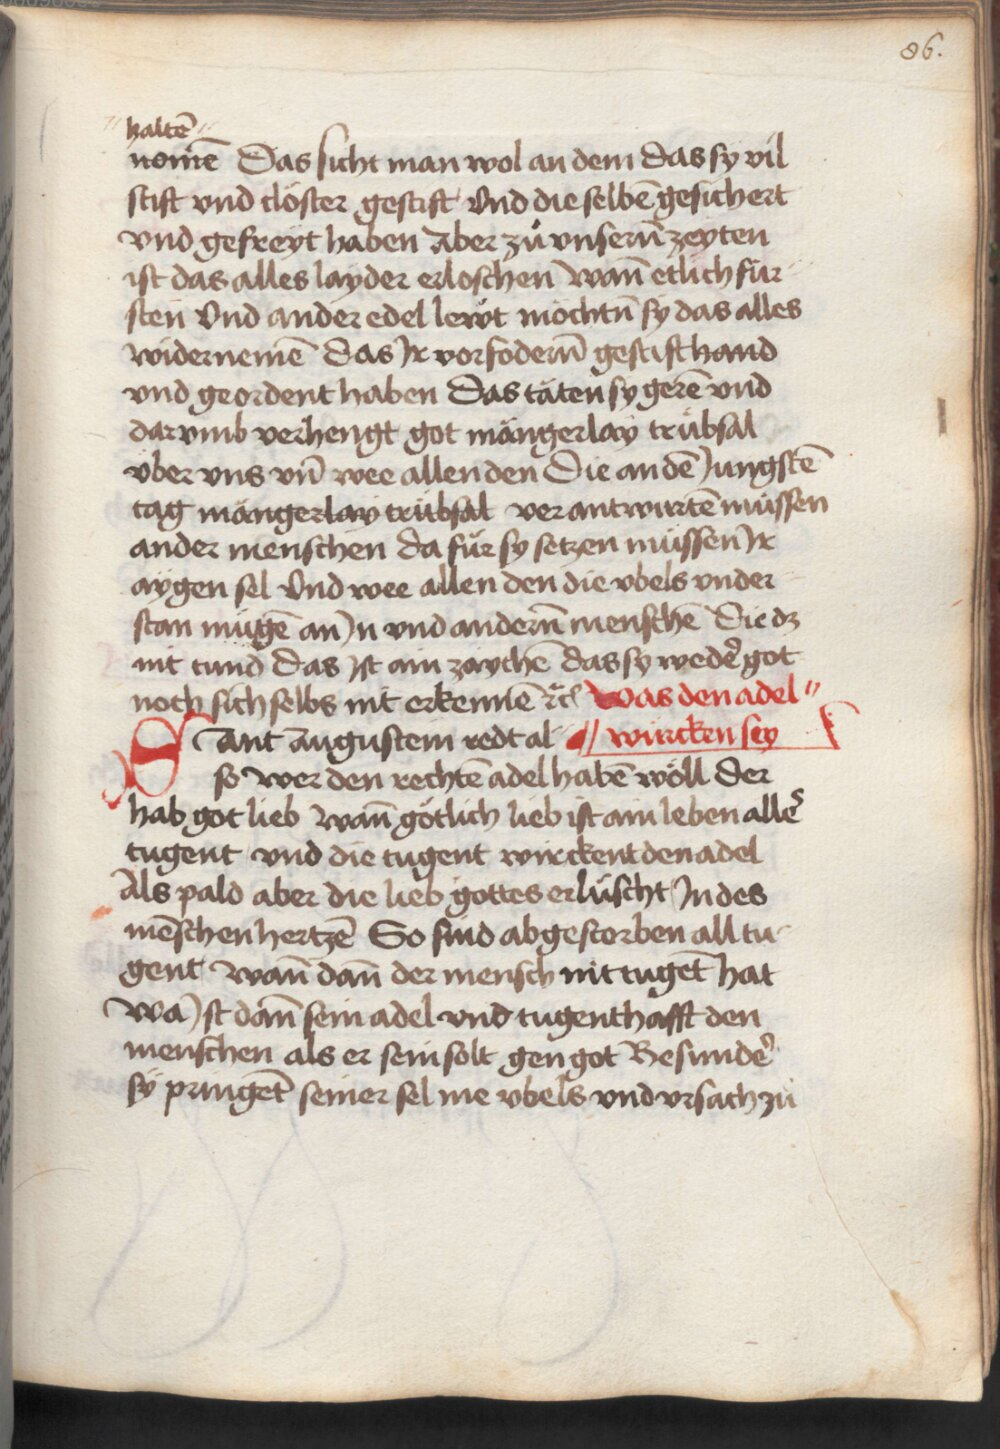 86.
haltē
nomē Das sicht man wol an dem das sy vil
stift vnd clöster gestift Vnd die selbē gesichert
vnd gefreyt haben Aber zů vnserñ zeyten
ist das alles layder erloschen wañ etlich für
sten Vnd ander edel lewt möchtñ sy das alles
widernemē Das Ir vorfoderñ gestift hand
vnd geordent haben Das täten sy gerē vnd
darvmb verhengt got mängerlay trübsal
vber vns vñ wee allen den Die an dē Jungstē
tag mängerlay trübsal verantwurtē müssen
ander menschen da für sy setzen müssen Ir
aygen sel Vnd wee allen den die vbels vnder
stan mügē an In vnd anderñ menschē Die dz
nit tund Das Ist ain zaychē das sy wedˀ got
noch sich selbs nit erkennē ꝛc Was den adel
Sant Augustein redt al würcken sey
so wer den rechtē adel habē wöll Der
hab got lieb wañ götlich lieb ist ain leben allˀ
tugent vnd die tugent wirckent den adel
Als pald aber die lieb gottes erlüscht In des
mēschen hertzē So sind abgestorben all tu
gent wañ dañ der mensch nit tugēt hat
wa Ist dañ sein adel vnd tugenthafft den
menschen als er sein solt gen got Besundˀ
sy pringēt seiner sel me vbels vnd vrsach zů